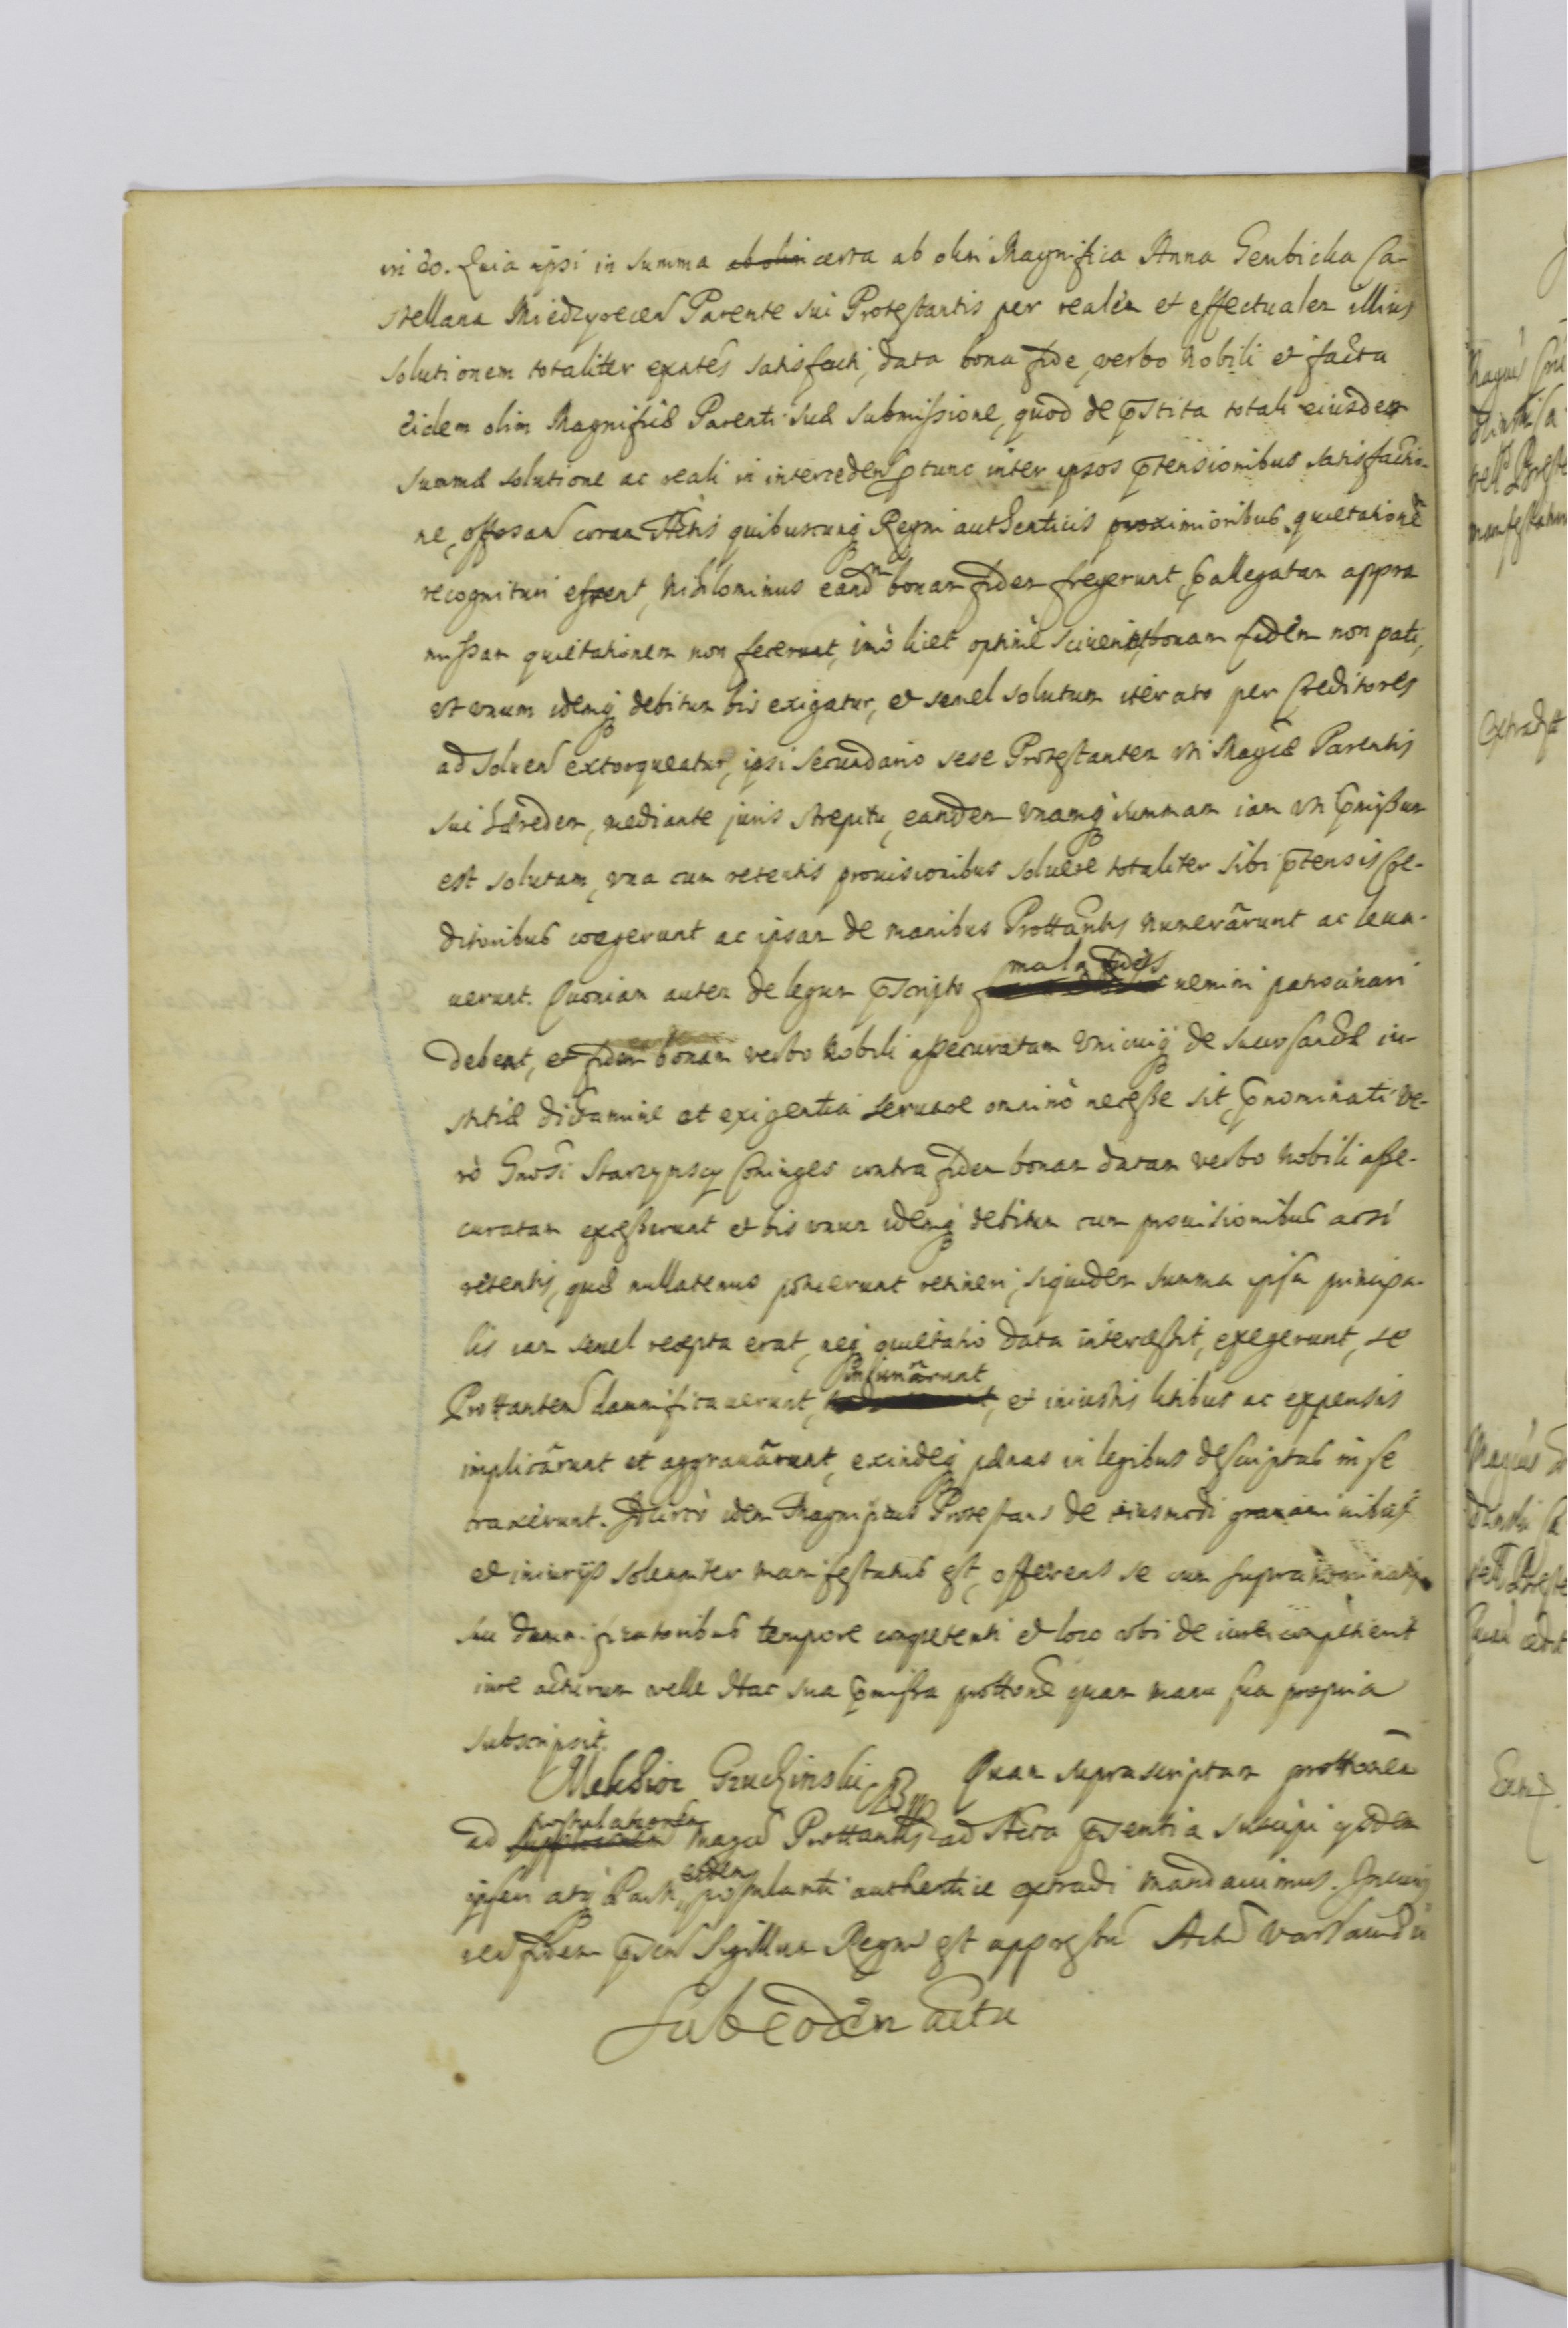 in eo. Quia ipsi in summa ab olim certa ab olim Magnifica Anna Gembicka Ca-
stellana Miedzyrecen Parente sui Protestantis per realem et effectualem illius
solutionem totaliter exntes satisfacti, data bona fide, verbo nobili et facta
eidem olim Magnificæ Parenti suæ submissione, quod de pstita totali eiusdem
summæ solutione ac reali in interceden ptunc inter ipsos ptensionibus satisfactio-
ne, offosan coram Actis quibuscunq Regni authenticis proximioribus quietationē
recognituri essent, nihilominus eandm bonam fidem fregerunt, pallegatam appro
missam quietationem non fecerunt, imò licet optimè sciuerint, bonam fidem non pati,
vt vnum idemq debitum bis exigatur, et semel solutum iterato per Creditores
ad soluen extorqueatur, ipsi secundario sese Protestantem vti Magcæ Parentis
sui hæredem, mediante juris strepitu, eandem vnamq summam iam vti pmissum
est solutam, vna cum retentis prouisionibus soluere totaliter sibi ptensis Cre-
ditoribus coegerunt ac ipsam de manibus Prottantis numerârunt ac leua-
uerunt. Quoniam autem de legum pscripto mala fides nemini patrocinari
debeat, et fidem bonam verbo nobili assecuratam vnicuiq de sacrosanctæ iu-
stitiæ dictamine et exigentia seruare omninò necesse sit, pnominati ve-
rò Gnosi Starzynscy Coniuges contra fidem bonam datam verbo nobili asse-
curatam excesserunt et bis vnum idemq debitum cum prouisionibus acsi
retentis, quæ nullatenus potuerunt retineri, siquidem summa ipsa principa-
lis iam semel recepta erat, neq quietatio data intercessit, exegerunt, se
Prottantem damnificauerunt, et iniustis litibus ac expensis
implicârunt et aggrauârunt, exindeq pænas in legibus descriptas in se
traxerunt. Idcircò idem Magnificus Protestans de eiusmodi grauaminibus
et iniurijs solenniter manifestatus est, offerens se cum supranominatis
sui damnificatoribus tempore competenti et loco vbi de iure competierit
iure acturum velle Hac sua pmissa prottone quam manu sua propria
subscripsit.
Melchior Gruchinski Quam suprascriptam prottonem
ad postulationem Magci Prottantis ad Acta psentia suscipi
ipsen atq Parti eidem postulanti authentice extradi mandauimus. In cuius
rei fidem psen Sigillum Regni est appressu Actu Varsauiæ
Sub eodem actu